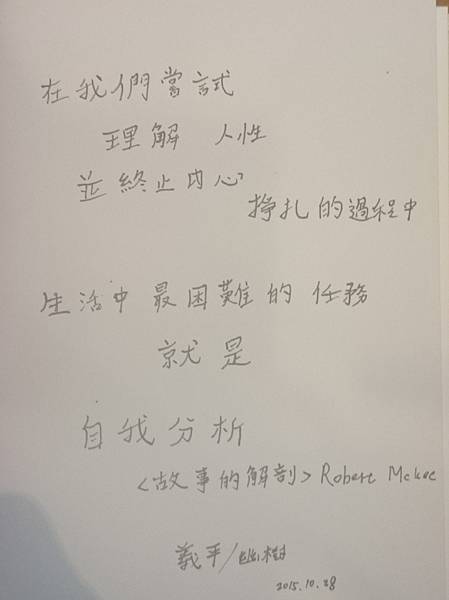 在我們嘗試
理解 人性
並終止內心
掙扎的過程中
生活中 最困難的 任務
就是
自我分析
<故事的解剖> Robert Mckee
義平/
2015.10.28